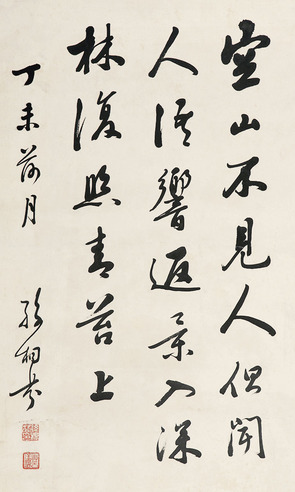 空山不見人但聞
人語響返景入深
林復照青苔上
丁未月
孫